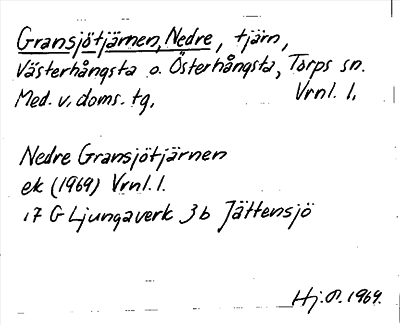 Gransjötjärnen, Nedre, tjärn,
Västerhångsta o. Österhångsta, Torps sn.
Med. v. doms. tg. Vrnl. 1.
Nedre Gransjötjärnen
ek (1969) Vrnl. 1.
17 G Ljungaverk 3b Jättensjö
Hj. P. 1969.